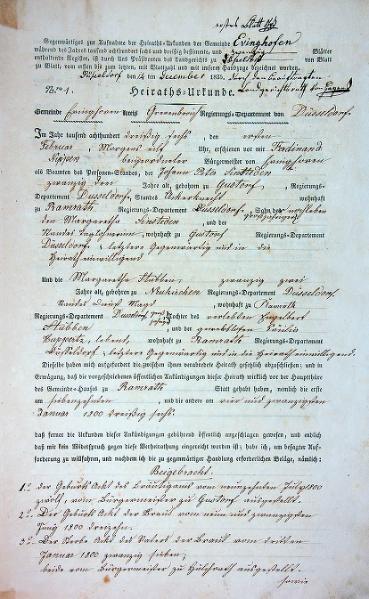 erstes Blatt
Gegenwärtiges zur Aufnahme der Heiraths-Urkunden der Gemeinde Evinghofen
während des Jahres tausend achthundert sechs und dreißig bestimmte, und
enthaltende Register, ist durch Uns Präsidenten des Landgerichts zu Düsseldorf Blätter
zu Blatt, vom ersten bis zum letzten, mit Blattzahl und mit unserm Handzuge bezeichnet worden. von Blatt
Düsseldorf den 14 ten December 1835.
Nro. 1. Heiraths-Urkunde.
Gemeinde Evinghoven Kreis Grevenbroich Regierungs-Departement von Düsseldorf.
Im Jahr tausend achthundert dreißig sechs, den ersten
Februar, Morgens Uhr, erschienen vor mir Ferdinand
beigeordneter Bürgermeister von Evinghoven
als Beamten des Personen-Standes, der Johann Peter
zwanzig drei Jahre alt, gebohren zu Gustorf, Regierungs-
Departement Düsseldorf, Standes Ackerknecht, wohnhaft
zu Ramrath Regierungs-Departement Düsseldorf, Sohn des
den Margaretha und der
Standes Taglöhnerinn, wohnhaft zu Gustorf Regierungs-Departement
Düsseldorf, letztere Gegenwärtig und in die
Heirath einwilligend.
Und die Margaretha Hübben, zwanzig zwei
Jahre alt, gebohren zu Neukirchen Regierungs-Departement Düsseldorf
Standes Dienst Magd, wohnhaft zu Ramrath
Regierungs-Departement Düsseldorf, Tochter des verlebten Engelbert
Hübben und der
lebend, wohnhaft zu Ramrath Regierungs-Departement
Düsseldorf, letztere Gegenwärtig und in die Heirath einwilligend.
Dieselbe haben mich aufgefordert die zwischen ihnen verabredete Heirath gesetzlich abzuschließen; und in
Erwägung, daß die vorgeschriebenen öffentlichen Ankündigungen dieser Heirath wirklich vor der Hauptthüre
des Gemeinde-Hauses zu Ramrath Statt gehabt haben, nemlich die erste
am siebenzehnten, und die andere am vier und zwanzigsten
Januar 1800 dreißig sechs.
daß ferner die Urkunden dieser Ankündigungen gebührend öffentlich angeschlagen gewesen, und endlich
daß mir kein Widerspruch gegen diese Verheirathung eingereicht worden ist; habe ich, um besagter Auf-
forderung zu willfahren, und nachdem ich die zu gegenwärtiger Handlung erforderlichen Beläge, nämlich:
Beigebracht.
1.° der Geburts Akt des Bräutigams vom neunzehnten July 1800
zwölf, vom Bürgermeister zu Gustorf ausgestellt.
2.° Der Geburts Akt der Braut vom neun und zwanzigsten
Juny 1800 dreizehn.
3.° Der Sterbe Akt des Vaters der Braut vom dritten
Januar 1800 zwanzig sieben;
beide vom Bürgermeister zu Hülchrath ausgestellt.
sowie